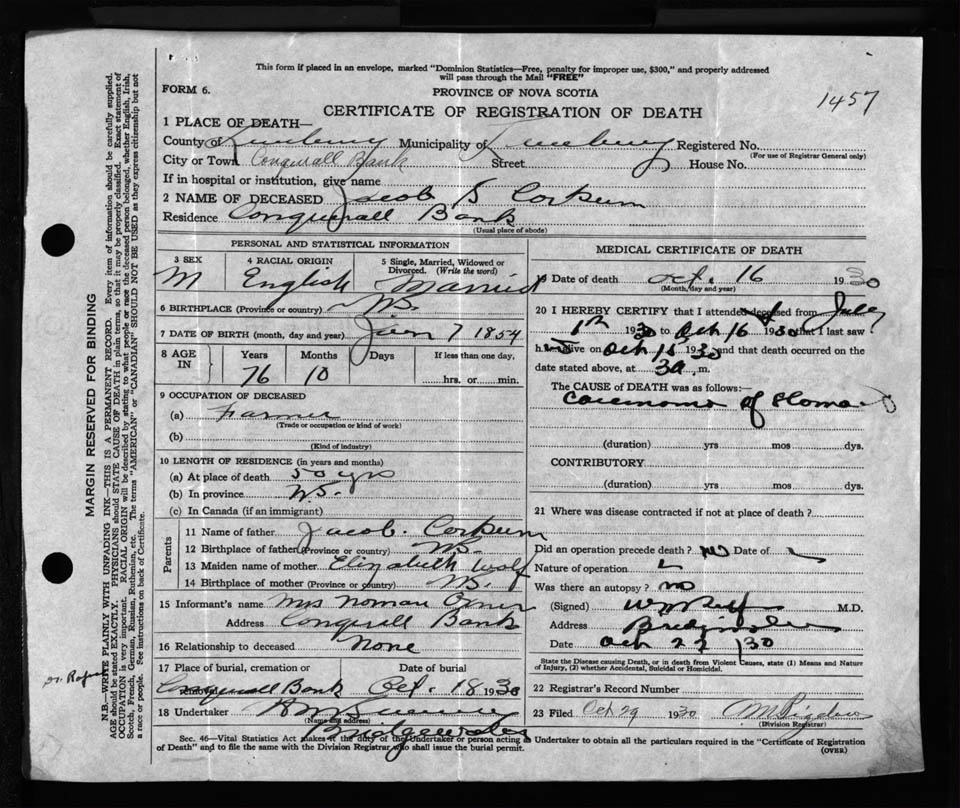 This form if placed in an envelope, marked "Dominion Statistics—Free, penalty for improper use, $300," and properly addressed
will pass through the Mail "FREE"
FORM 6.
PROVINCE OF NOVA SCOTIA
1457
CERTIFICATE OF REGISTRATION OF DEATH
1 PLACE OF DEATH—
County of Lunenburg Municipality of Lunenburg Registered No.
(For use of Registrar General only)
City or Town Conquerall Bank Street House No.
If in hospital or institution, give name
2 NAME OF DECEASED Jacob S Corkum
Residence Conquerall Bank
(Usual place of abode)
PERSONAL AND STATISTICAL INFORMATION
3 SEX 4 RACIAL ORIGIN 5 Single, Married, Widowed or Divorced. (Write the word)
M English Married
6 BIRTHPLACE (Province or country) N.S.
7 DATE OF BIRTH (month, day and year) 7 1854
8 AGE IN Years Months Days If less than one day,
76 10 hrs. or min.
9 OCCUPATION OF DECEASED
(a) Farmer
(Trade or occupation or kind of work)
(b)
(Kind of industry)
10 LENGTH OF RESIDENCE (in years and months)
(a) At place of death 50 yrs
(b) In province N.S.
(c) In Canada (if an immigrant)
Parents
11 Name of father Jacob Corkum
12 Birthplace of father (Province or country) N.S.
13 Maiden name of mother Elizabeth Wolf
14 Birthplace of mother (Province or country) N.S.
15 Informant's name Mrs Noman
Address Conquerall Bank
16 Relationship to deceased None
17 Place of burial, cremation or removal Date of burial
Conquerall Bank Oct. 18 1930
18 Undertaker
(Name and address)
Bridgewater
MEDICAL CERTIFICATE OF DEATH
19 Date of death Oct. 16 1930
(Month, day and year)
20 I HEREBY CERTIFY that I attended deceased from July
1st 1930 to Oct 16 1930 that I last saw
h alive on Oct 15 1930 and that death occurred on the
date stated above, at 3 a. m.
The CAUSE of DEATH was as follows:—
Carcinoma of Stomach
(duration) yrs mos dys.
CONTRIBUTORY
(duration) yrs. mos. dys.
21 Where was disease contracted if not at place of death?
Did an operation precede death? No Date of
Nature of operation
Was there an autopsy? no
(Signed) M.D.
Address Bridgewater
Date Oct 22 1930
State the Disease causing Death, or in death from Violent Causes, state (1) Means and Nature
of Injury, (2) whether Accidental, Suicidal or Homicidal.
22 Registrar's Record Number
23 Filed Oct 29 1930
(Division Registrar)
Sec. 46—Vital Statistics Act makes it the duty of the Undertaker or person acting as Undertaker to obtain all the particulars required in the "Certificate of Registration
of Death" and to file the same with the Division Registrar who shall issue the burial permit.
(OVER)
MARGIN RESERVED FOR BINDING
N.B.—WRITE PLAINLY WITH UNFADING INK—THIS IS A PERMANENT RECORD. Every item of information should be carefully supplied.
AGE should be stated EXACTLY. PHYSICIANS should STATE CAUSE OF DEATH in plain terms, so that it may be properly classified. Exact statement of
OCCUPATION is very important. RACIAL ORIGIN will be described by stating to what people or race the deceased person belonged, whether English, Irish,
Scotch, French, German, Russian, Ruthenian, etc. The terms "AMERICAN" or "CANADIAN" SHOULD NOT BE USED as they express citizenship but not
a race or people. See instructions on back of Certificate.